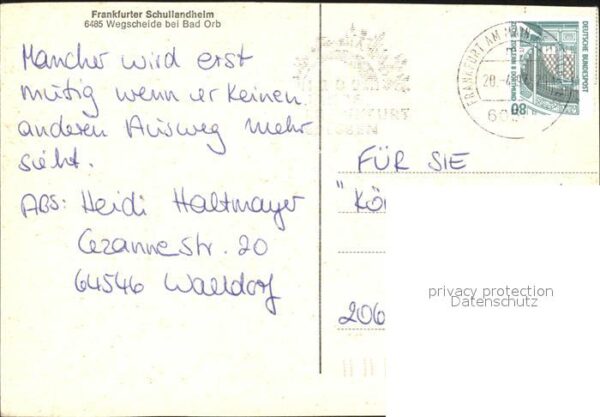 Frankfurter Schullandheim
6485 Wegscheide bei Bad Orb
Mancher wird erst
mutig wenn er keinen
anderen Ausweg mehr
sieht.
ABS: Heidi Haltmayer
Cezannestr. 20
64546 Walldorf
FRANKFURT AM MAIN
DEUTSCHE BUNDESPOST
80
FÜR SIE
"KÖ
206
privacy protection
Datenschutz